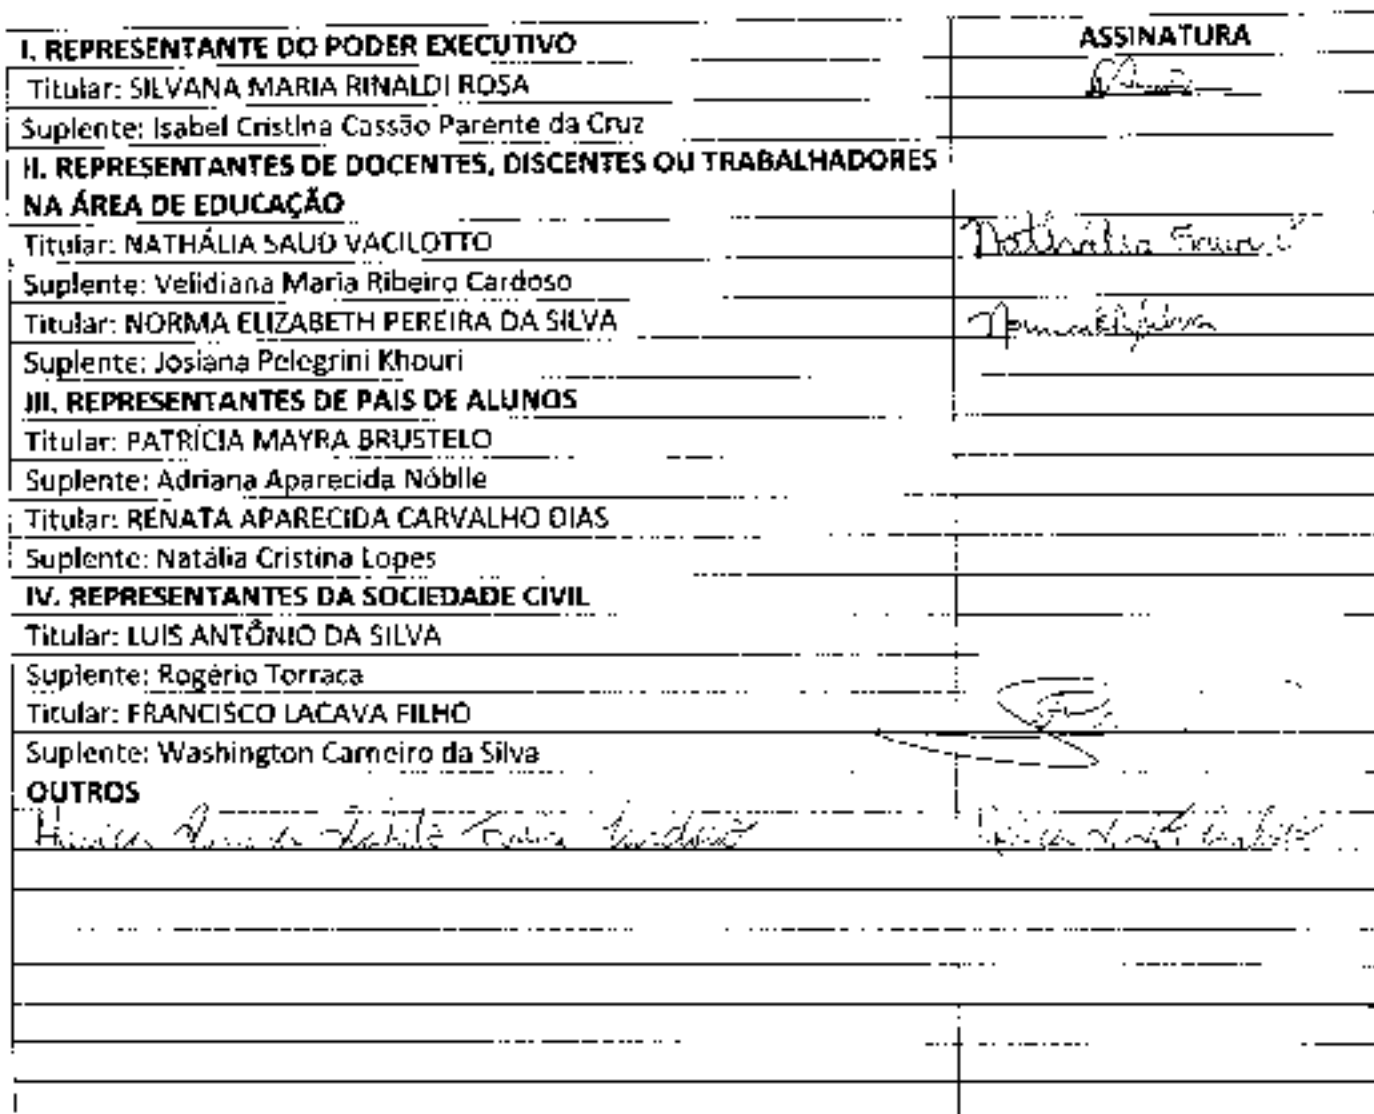 I. REPRESENTANTE DO PODER EXECUTIVO ASSINATURA
Titular: SILVANA MARIA RINALDI ROSA
Suplente: Isabel Cristina Cassão Parente da Cruz
II. REPRESENTANTES DE DOCENTES, DISCENTES OU TRABALHADORES
NA ÁREA DE EDUCAÇÃO
Titular: NATHÁLIA SAUD VACILOTTO Nathália
Suplente: Velidiana Maria Ribeiro Cardoso
Titular: NORMA ELIZABETH PEREIRA DA SILVA
Suplente: Josiana Pelegrini Khouri
III. REPRESENTANTES DE PAIS DE ALUNOS
Titular: PATRÍCIA MAYRA BRUSTELO
Suplente: Adriana Aparecida Nóblle
Titular: RENATA APARECIDA CARVALHO DIAS
Suplente: Natália Cristina Lopes
IV. REPRESENTANTES DA SOCIEDADE CIVIL
Titular: LUIS ANTÔNIO DA SILVA
Suplente: Rogério Torraca
Titular: FRANCISCO LACAVA FILHO
Suplente: Washington Carneiro da Silva
OUTROS